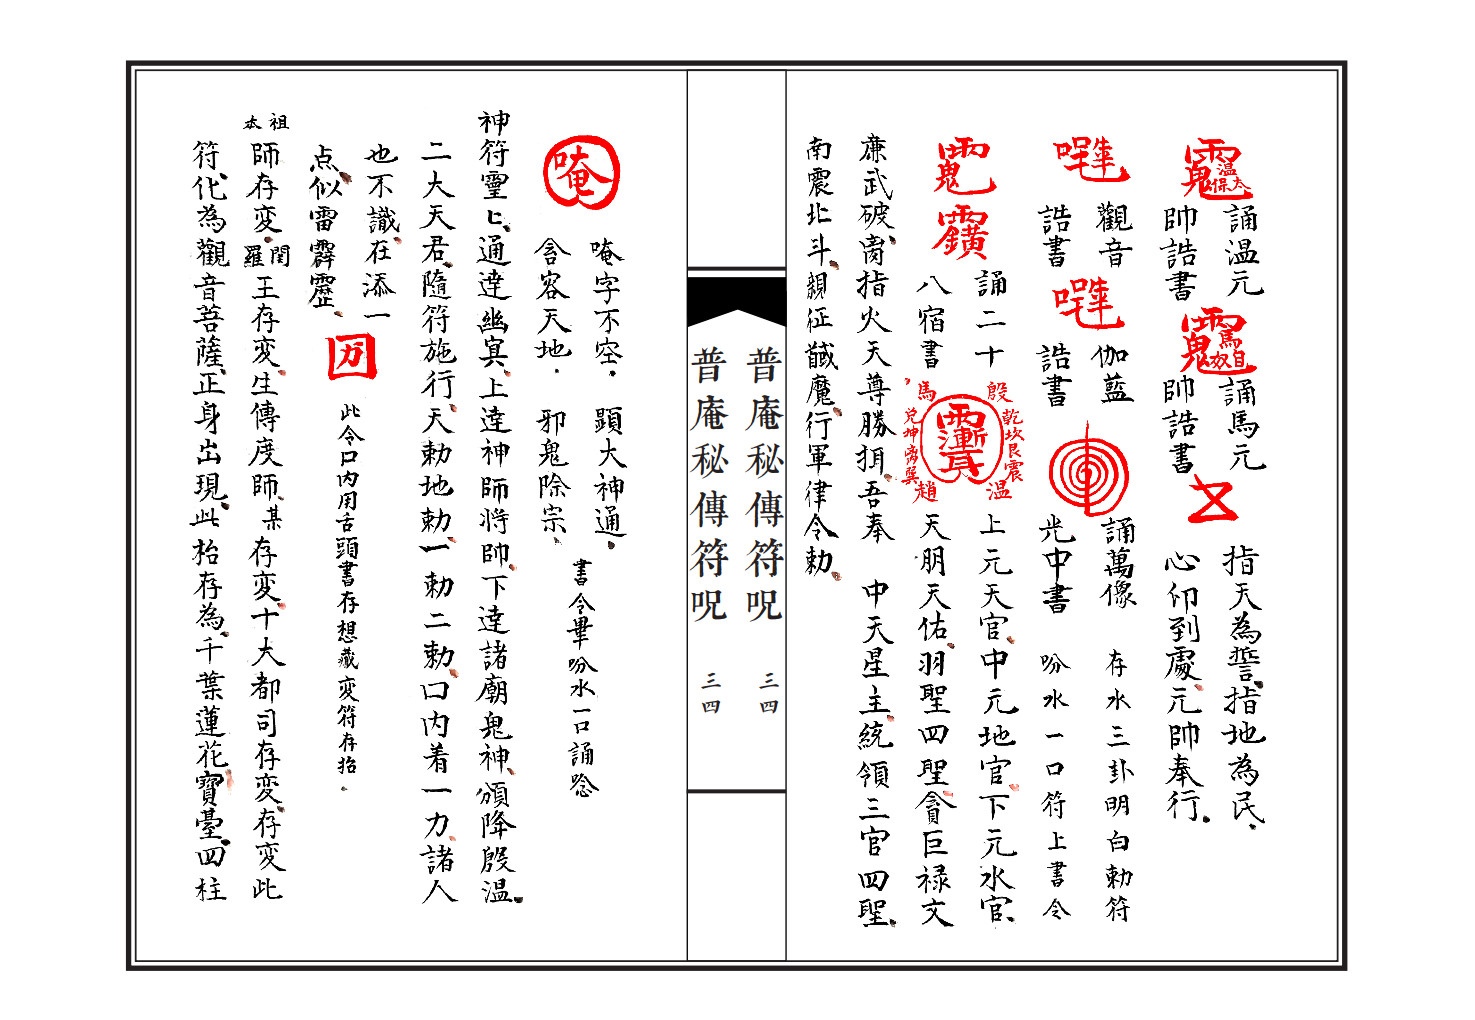 誦温元
帥誥書
温
太保
誦馬元
帥誥書
馬
自
指天為誓指地為民
心仰到處元帥奉行
觀音
誥書
伽藍
誥書
誦萬像
光中書
存水三卦明白勅符
吩水一口符上書令
誦二十
八宿書
殷
馬
乾坎艮震
兌坤离巽
温
趙
上元天官中元地官下元水官
天朋天佑羽聖四聖貪巨禄文
廉武破
指火天尊勝
吾奉
中天星主統領三官四聖
南震北斗親征馘魔行軍律令勅
普庵秘傳符呪
三四
普庵秘傳符呪
三四
唵
唵字不空
含容天地
顕大神通
邪鬼除宗
書令畢吩水一口誦唸
神符靈匕通達幽冥上達神師將帥下達諸廟鬼神頒降殷温
二大天君隨符施行天勅地勅一勅二勅口内着一力諸人
也不識在添一
点似雷霹靂
此令口内用舌頭書存想藏変符存抬
祖
本
師存変
閏
羅
王存変生傳度師
某
存変十大都司存変存変此
符化為觀音菩薩正身出現此枱存為千葉蓮花寶臺四柱